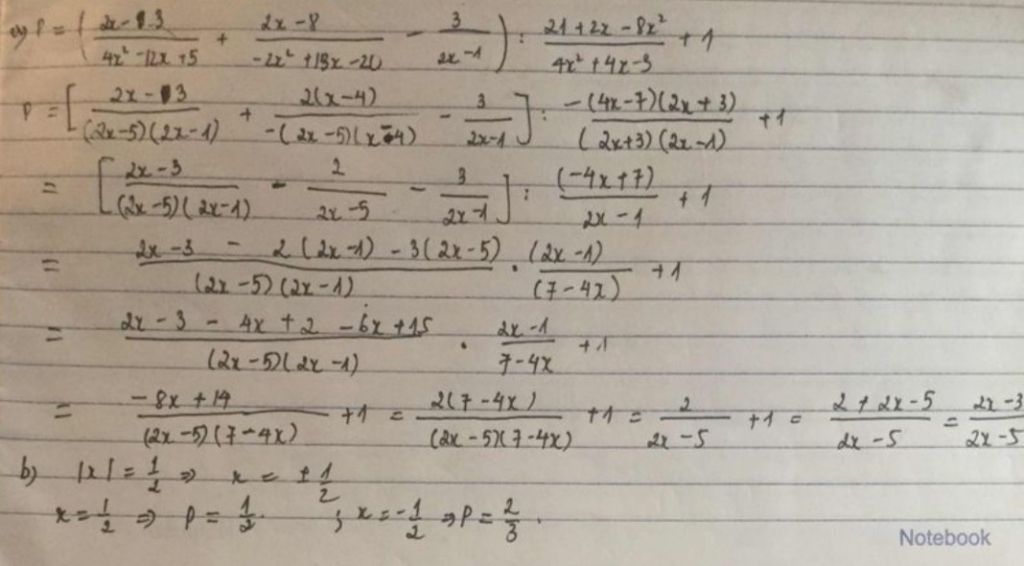 a) P = ( (2x-3)/(4x²-12x+5) + (2x-8)/(-2x²+13x-20) - 3/(2x-1) ) : (21+2x-8x²)/(4x²+4x-3) + 1
P = [ (2x-3)/((2x-5)(2x-1)) + 2(x-4)/(-(2x-5)(x-4)) - 3/(2x-1) ] : -(4x-7)(2x+3)/((2x+3)(2x-1)) + 1
= [ (2x-3)/((2x-5)(2x-1)) - 2/(2x-5) - 3/(2x-1) ] : (-4x+7)/(2x-1) + 1
= (2x-3 - 2(2x-1) - 3(2x-5))/((2x-5)(2x-1)) . (2x-1)/(7-4x) + 1
= (2x-3-4x+2-6x+15)/((2x-5)(2x-1)) . (2x-1)/(7-4x) + 1
= (-8x+14)/((2x-5)(7-4x)) + 1 = 2(7-4x)/((2x-5)(7-4x)) + 1 = 2/(2x-5) + 1 = (2+2x-5)/(2x-5) = (2x-3)/(2x-5)
b) |x| = 1/2 => x = ±1/2
x = 1/2 => P = 1/2 ; x = -1/2 => P = 2/3.
Notebook